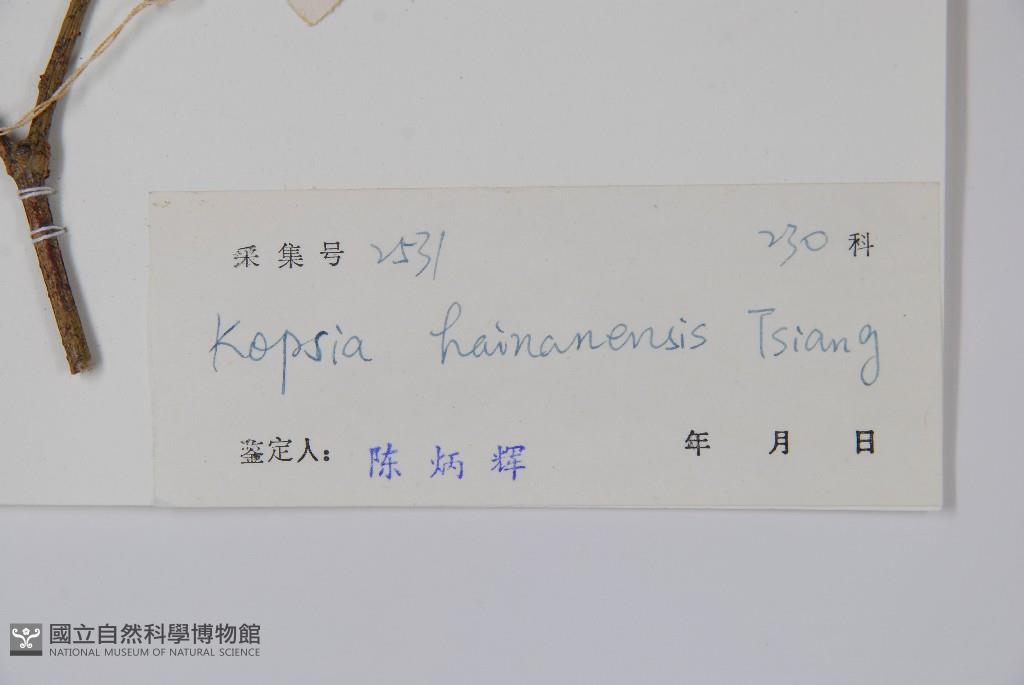 采集号 2531 230 科
Kopsia hainanensis Tsiang
鉴定人: 陈炳辉 年 月 日
國立自然科學博物館
NATIONAL MUSEUM OF NATURAL SCIENCE